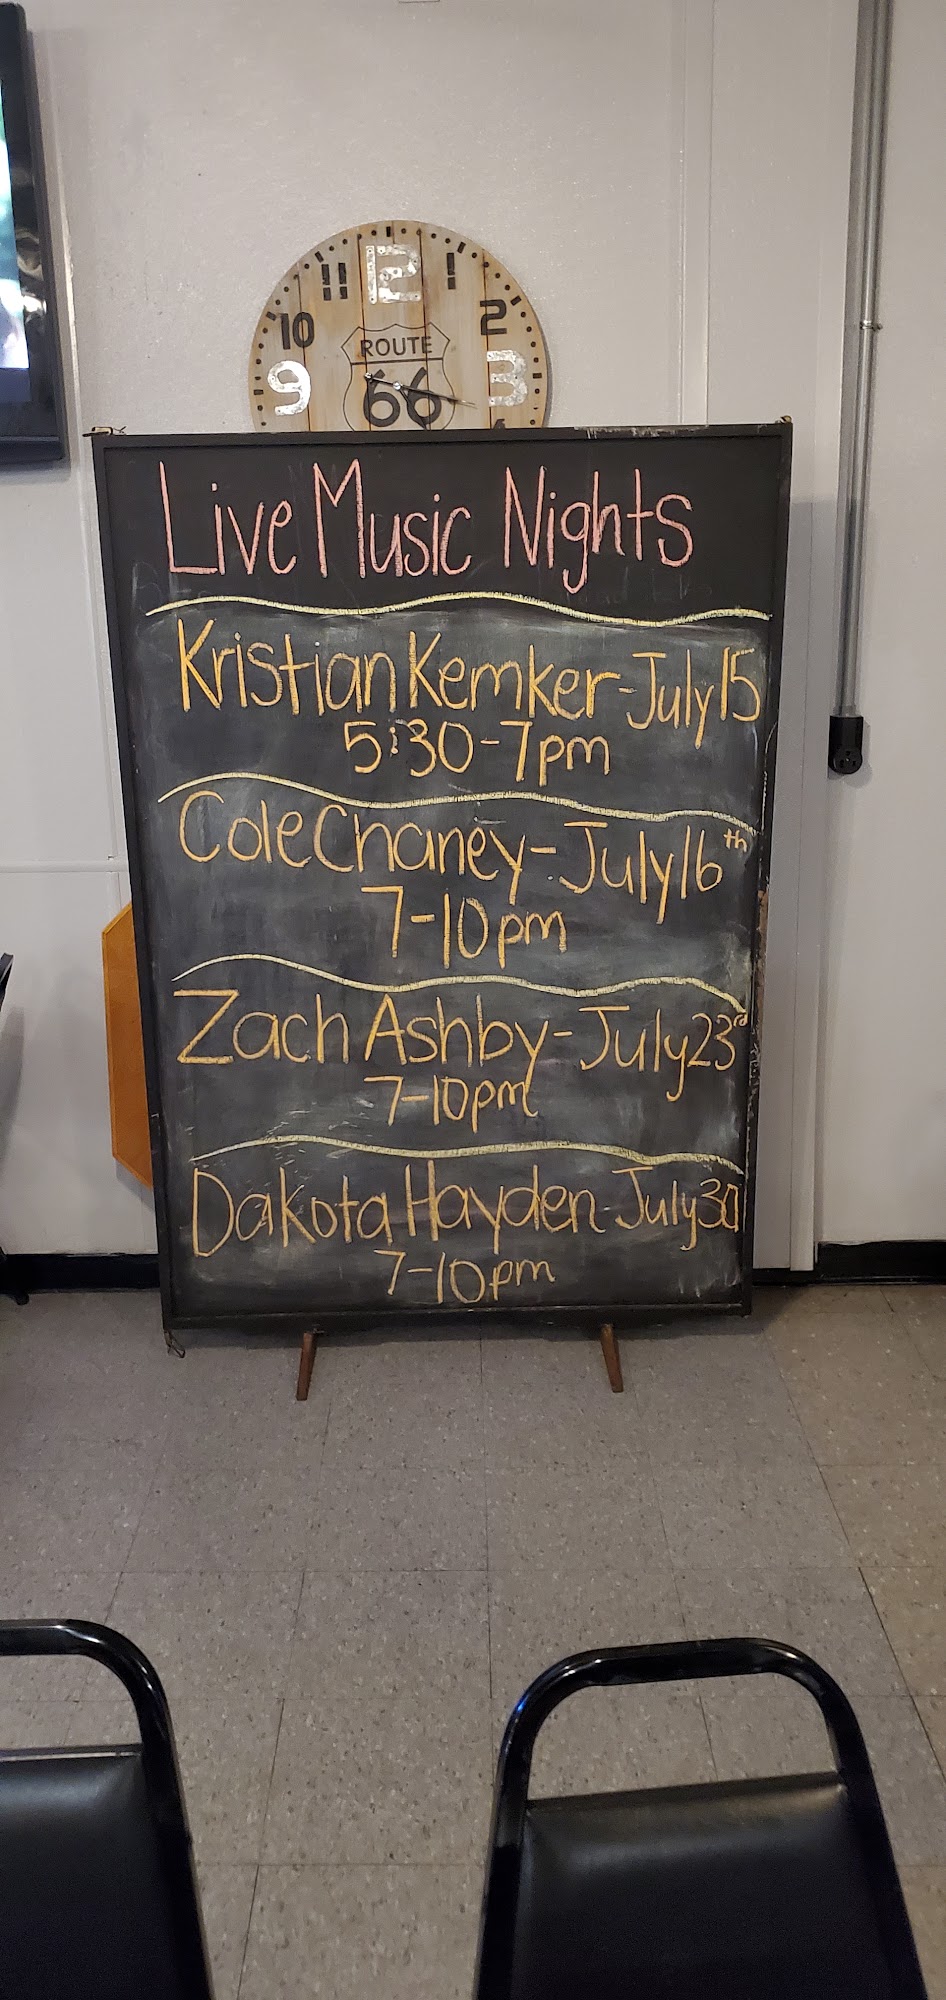 12
11
1
10
2
9
3
ROUTE
66
Live Music Nights
Kristian Kemker-July 15
5:30-7pm
Cole Chaney-July 16th
7-10pm
Zach Ashby-July 23rd
7-10pm
Dakota Hayden July 30
7-10pm